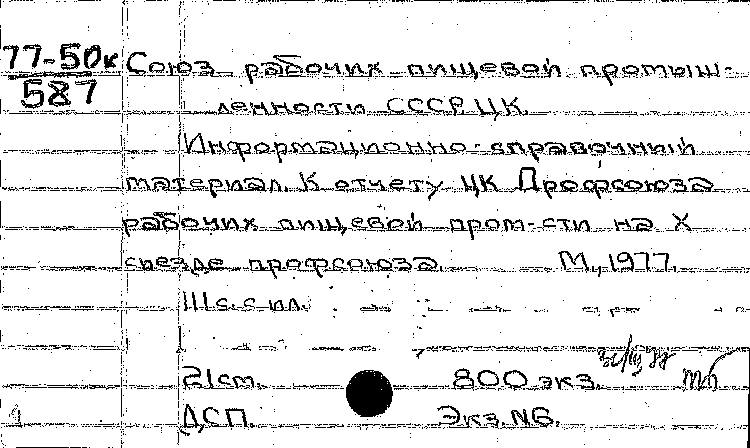 77-50к Союз рабочих пищевой промыш-
587
ленности СССР. ЦК.
Информационно-справочный
материал. К отчету ЦК Профсоюза
рабочих пищевой пром-сти на X
съезде профсоюза. М., 1977.
111 с. с ил.
21 см. 800 экз.
ДСП. Экз. № 6.